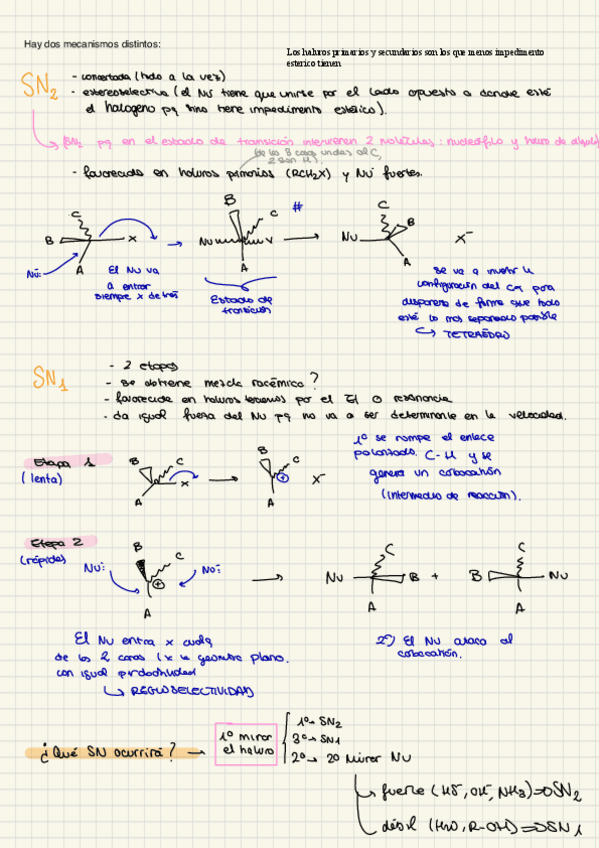 Hay dos mecanismos distintos:
Los haluros primarios y secundarios son los que menos impedimento
esterico tienen
SN2
- concertada (todo a la vez)
- estereoselectiva (el Nü tiene que unirse por el lado opuesto a donde esté
el halogeno pq sino tiene impedimento estérico).
SN2 pq en el estado de transición intervienen 2 moléculas: nucleófilo y haluro de alquilo
(de las 3 cosas unidas al C,
2 son H).
- favorecido en haluros primarios (RCH2X) y Nü fuertes.
C
B
X
A
Nü:
El Nü va
a entrar
siempre x detrás
B
C
#
Nu
X
A
Estado de
transición
C
B
Nu
A
X-
se va a invertir la
configuración del C pq para
disponerse de forma que todo
esté lo más separado posible
TETRAEDRO
SN1
- 2 etapas
- se obtiene mezcla racémica?
- favorecida en haluros terciarios por el EI o resonancia
- da igual fuerza del Nu pq no va a ser determinante en la velocidad.
Etapa 1
(lenta)
B
C
X
A
B
C
+
A
X-
1º se rompe el enlace
polarizado. C-H y se
genera un carbocatión
(intermedio de reacción).
Etapa 2
(rápida)
Nü:
B
C
+
A
Nü:
Nu
C
B
A
+
B
C
Nu
A
El Nu entra x cualq
de las 2 caras (x la geometría plana.
con igual probabilidad
REGIOSELECTIVIDAD
2º) El Nu ataca al
carbocatión.
¿Qué SN ocurrirá?
1º mirar
el haluro
1º → SN2
3º → SN1
2º → 2º mirar Nu
fuerte (HS-, OH-, NH3) => SN2
débil (H2O, R-OH) => SN1